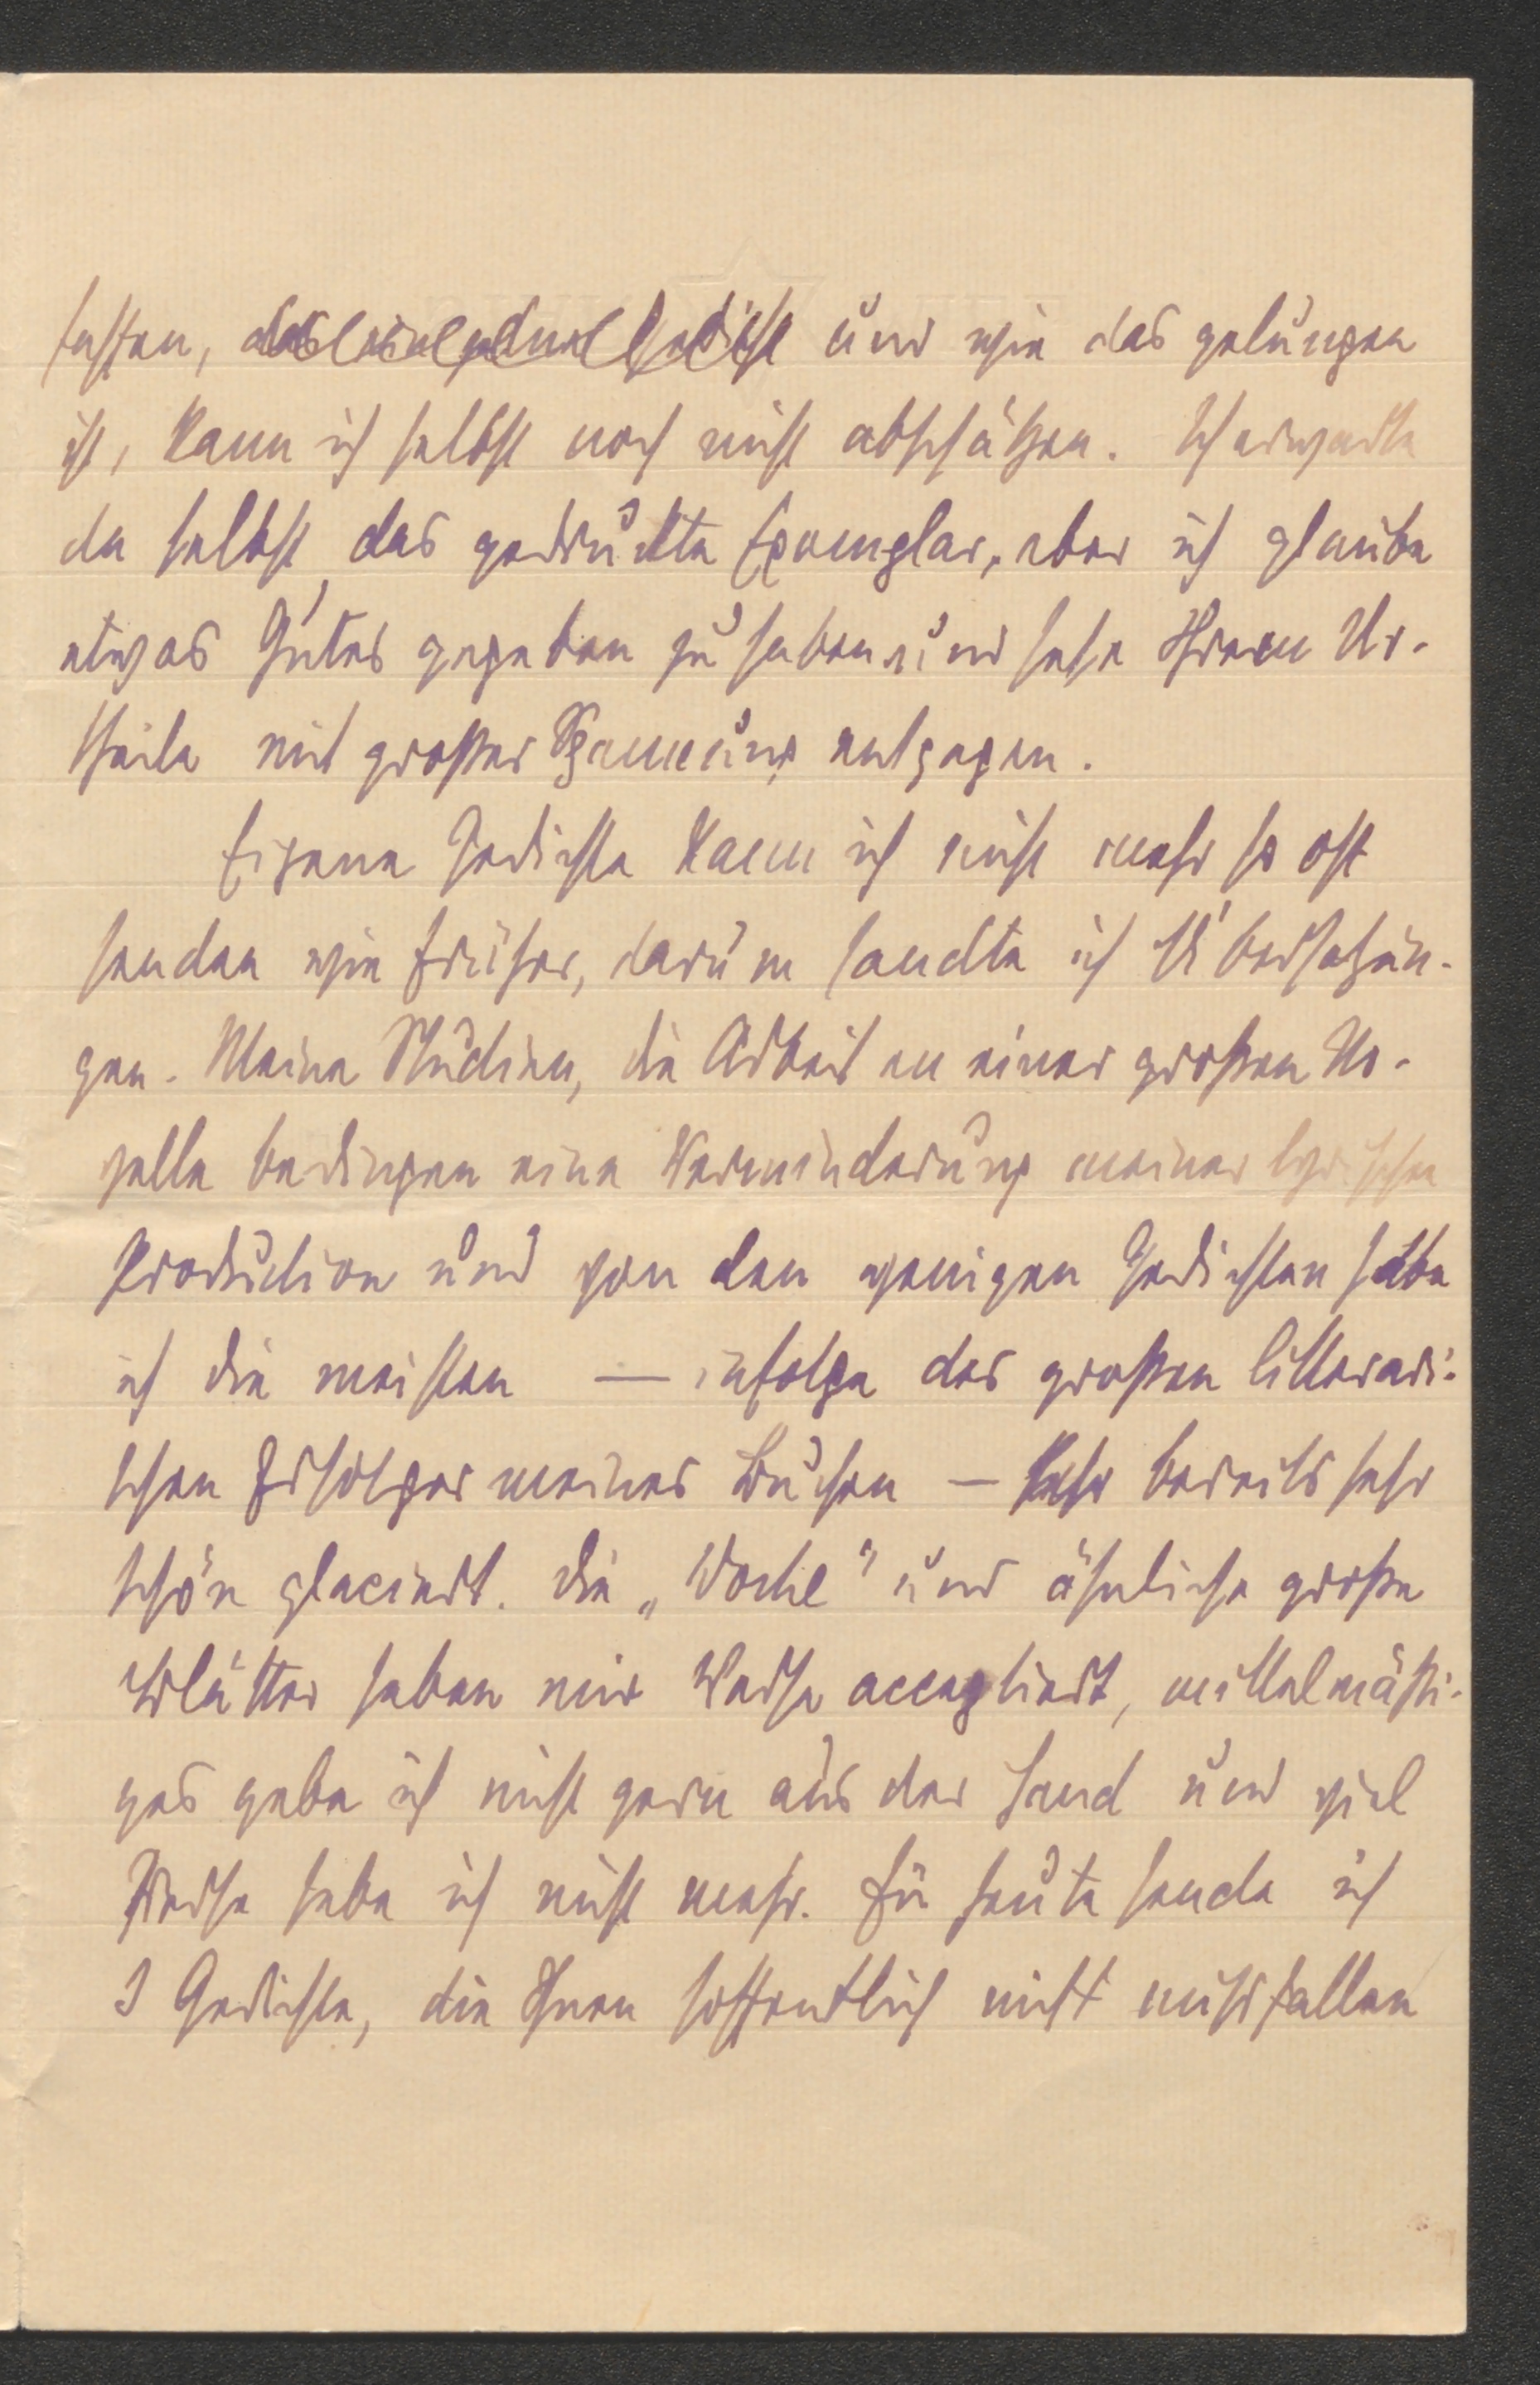 fassten, und wie das gelungen
ist, kann ich selbst noch nicht abschätzen. Ich erwarte
da selbst das gedruckte Exemplar, aber ich glaube
etwas Gutes gegeben zu haben und sehe Ihrem Ur-
theile mit großer Spannung entgegen.
Eigene Gedichte kann ich nicht mehr so oft
senden wie früher, darum sandte ich Übersetzun-
gen. Meine Studien, die Arbeit an einer großen No-
velle bedingen eine Verminderung meiner lyrischen
Production und von den wenigen Gedichten habe
ich die meisten — infolge des großen litterari-
schen Erfolges meines Buches — bereits sehr
schön placiert. Die „Woche" und ähnliche große
Blätter haben mir Verse acceptiert, mittelmäßi-
ges gebe ich nicht gern aus der Hand und viel
Verse habe ich nicht mehr. Für heute sende ich
3 Gedichte, die Ihnen hoffentlich nicht missfallen